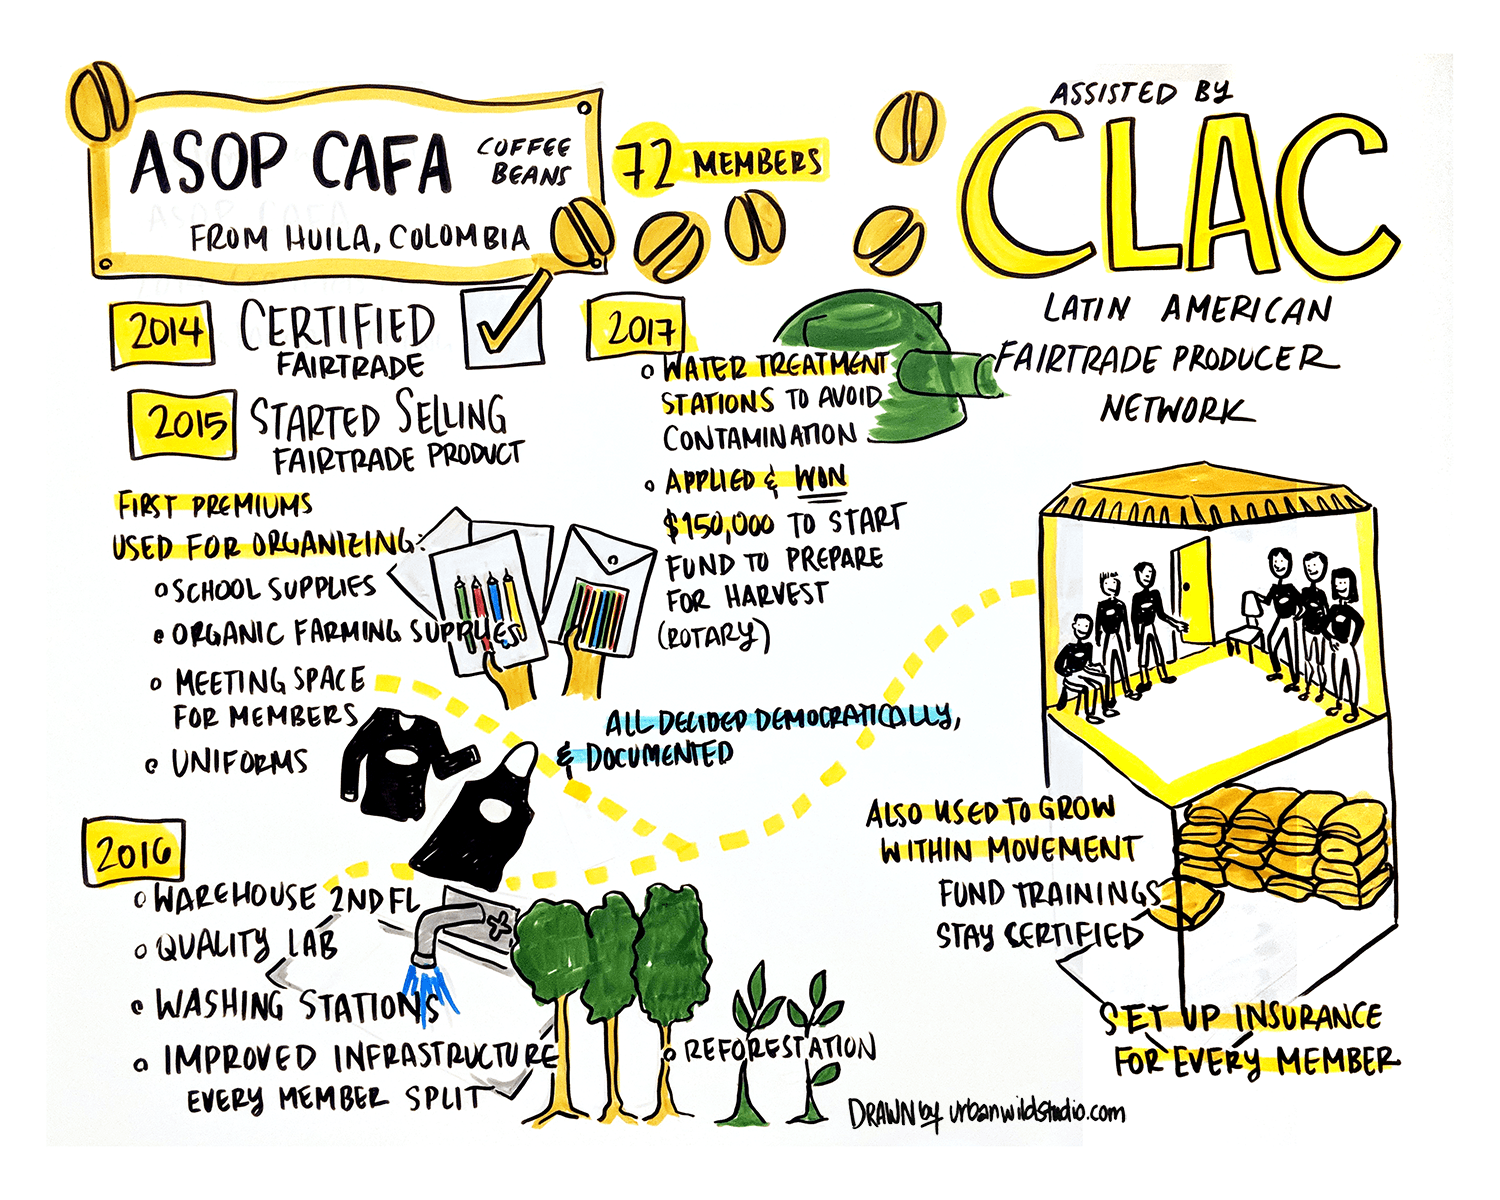 ASOP CAFA COFFEE BEANS
FROM HUILA, COLOMBIA
72 MEMBERS
ASSISTED BY
CLAC
LATIN AMERICAN
FAIRTRADE PRODUCER
NETWORK
2014 CERTIFIED
FAIRTRADE
2015 STARTED SELLING
FAIRTRADE PRODUCT
FIRST PREMIUMS
USED FOR ORGANIZING:
SCHOOL SUPPLIES
ORGANIC FARMING SUPPLIES
MEETING SPACE
FOR MEMBERS
UNIFORMS
2016
WAREHOUSE 2ND FL
QUALITY LAB
WASHING STATIONS
IMPROVED INFRASTRUCTURE
EVERY MEMBER SPLIT
REFORESTATION
2017
WATER TREATMENT
STATIONS TO AVOID
CONTAMINATION
APPLIED & WON
$150,000 TO START
FUND TO PREPARE
FOR HARVEST
(ROTARY)
ALL DECIDED DEMOCRATICALLY,
& DOCUMENTED
ALSO USED TO GROW
WITHIN MOVEMENT
FUND TRAININGS
STAY CERTIFIED
SET UP INSURANCE
FOR EVERY MEMBER
DRAWN by urbanwildstudio.com